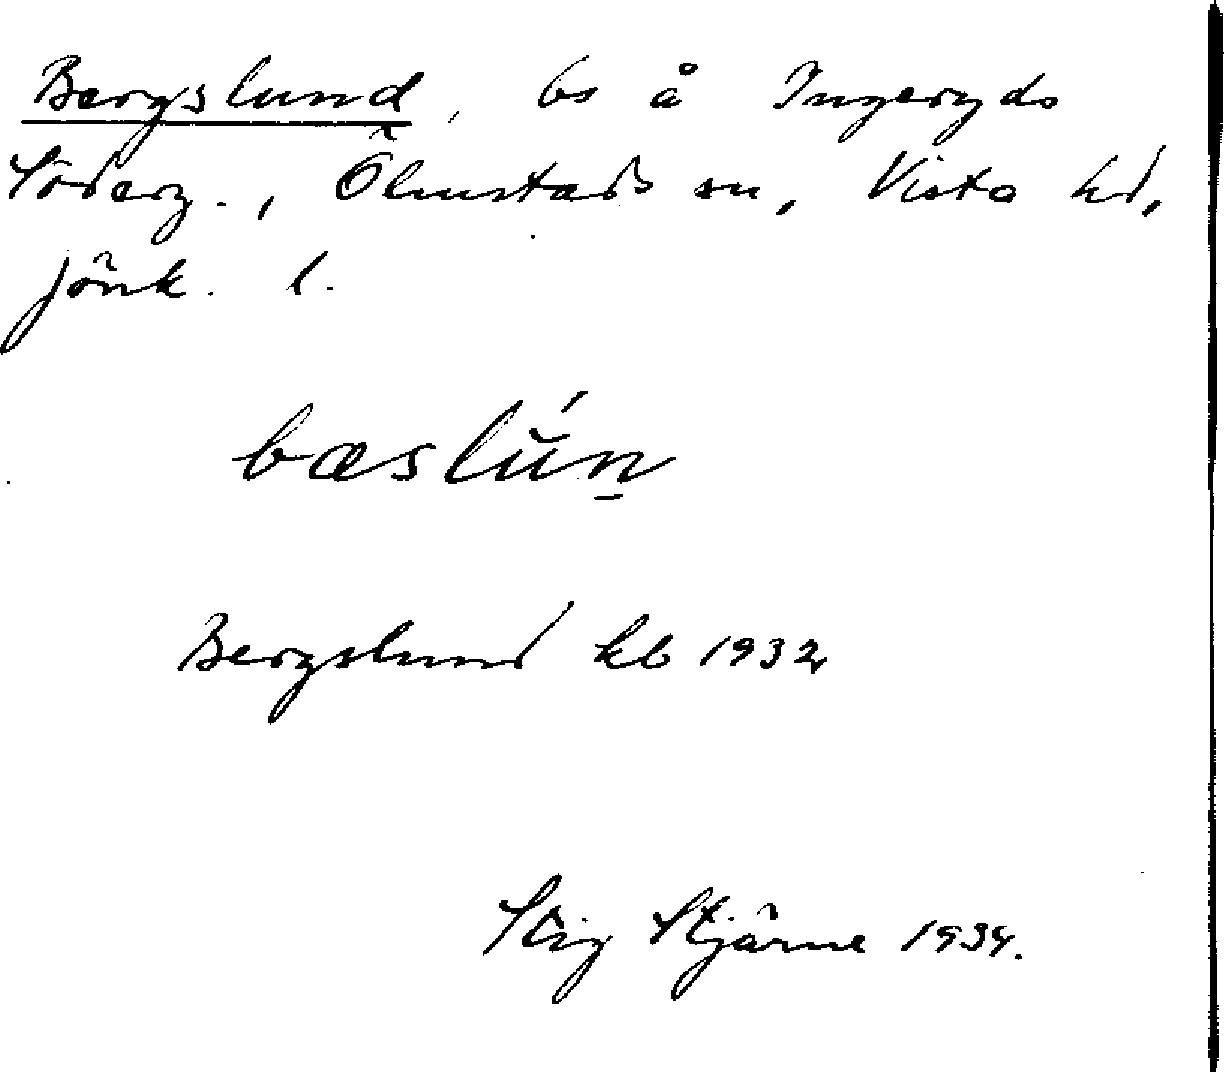 Bergslund, bs å Ingeryds
Söderg., Ölmstads sn, Vista hd,
Jönk. l.
bæslún̠
Bergslund kb 1932
Stig Stjärne 1934.